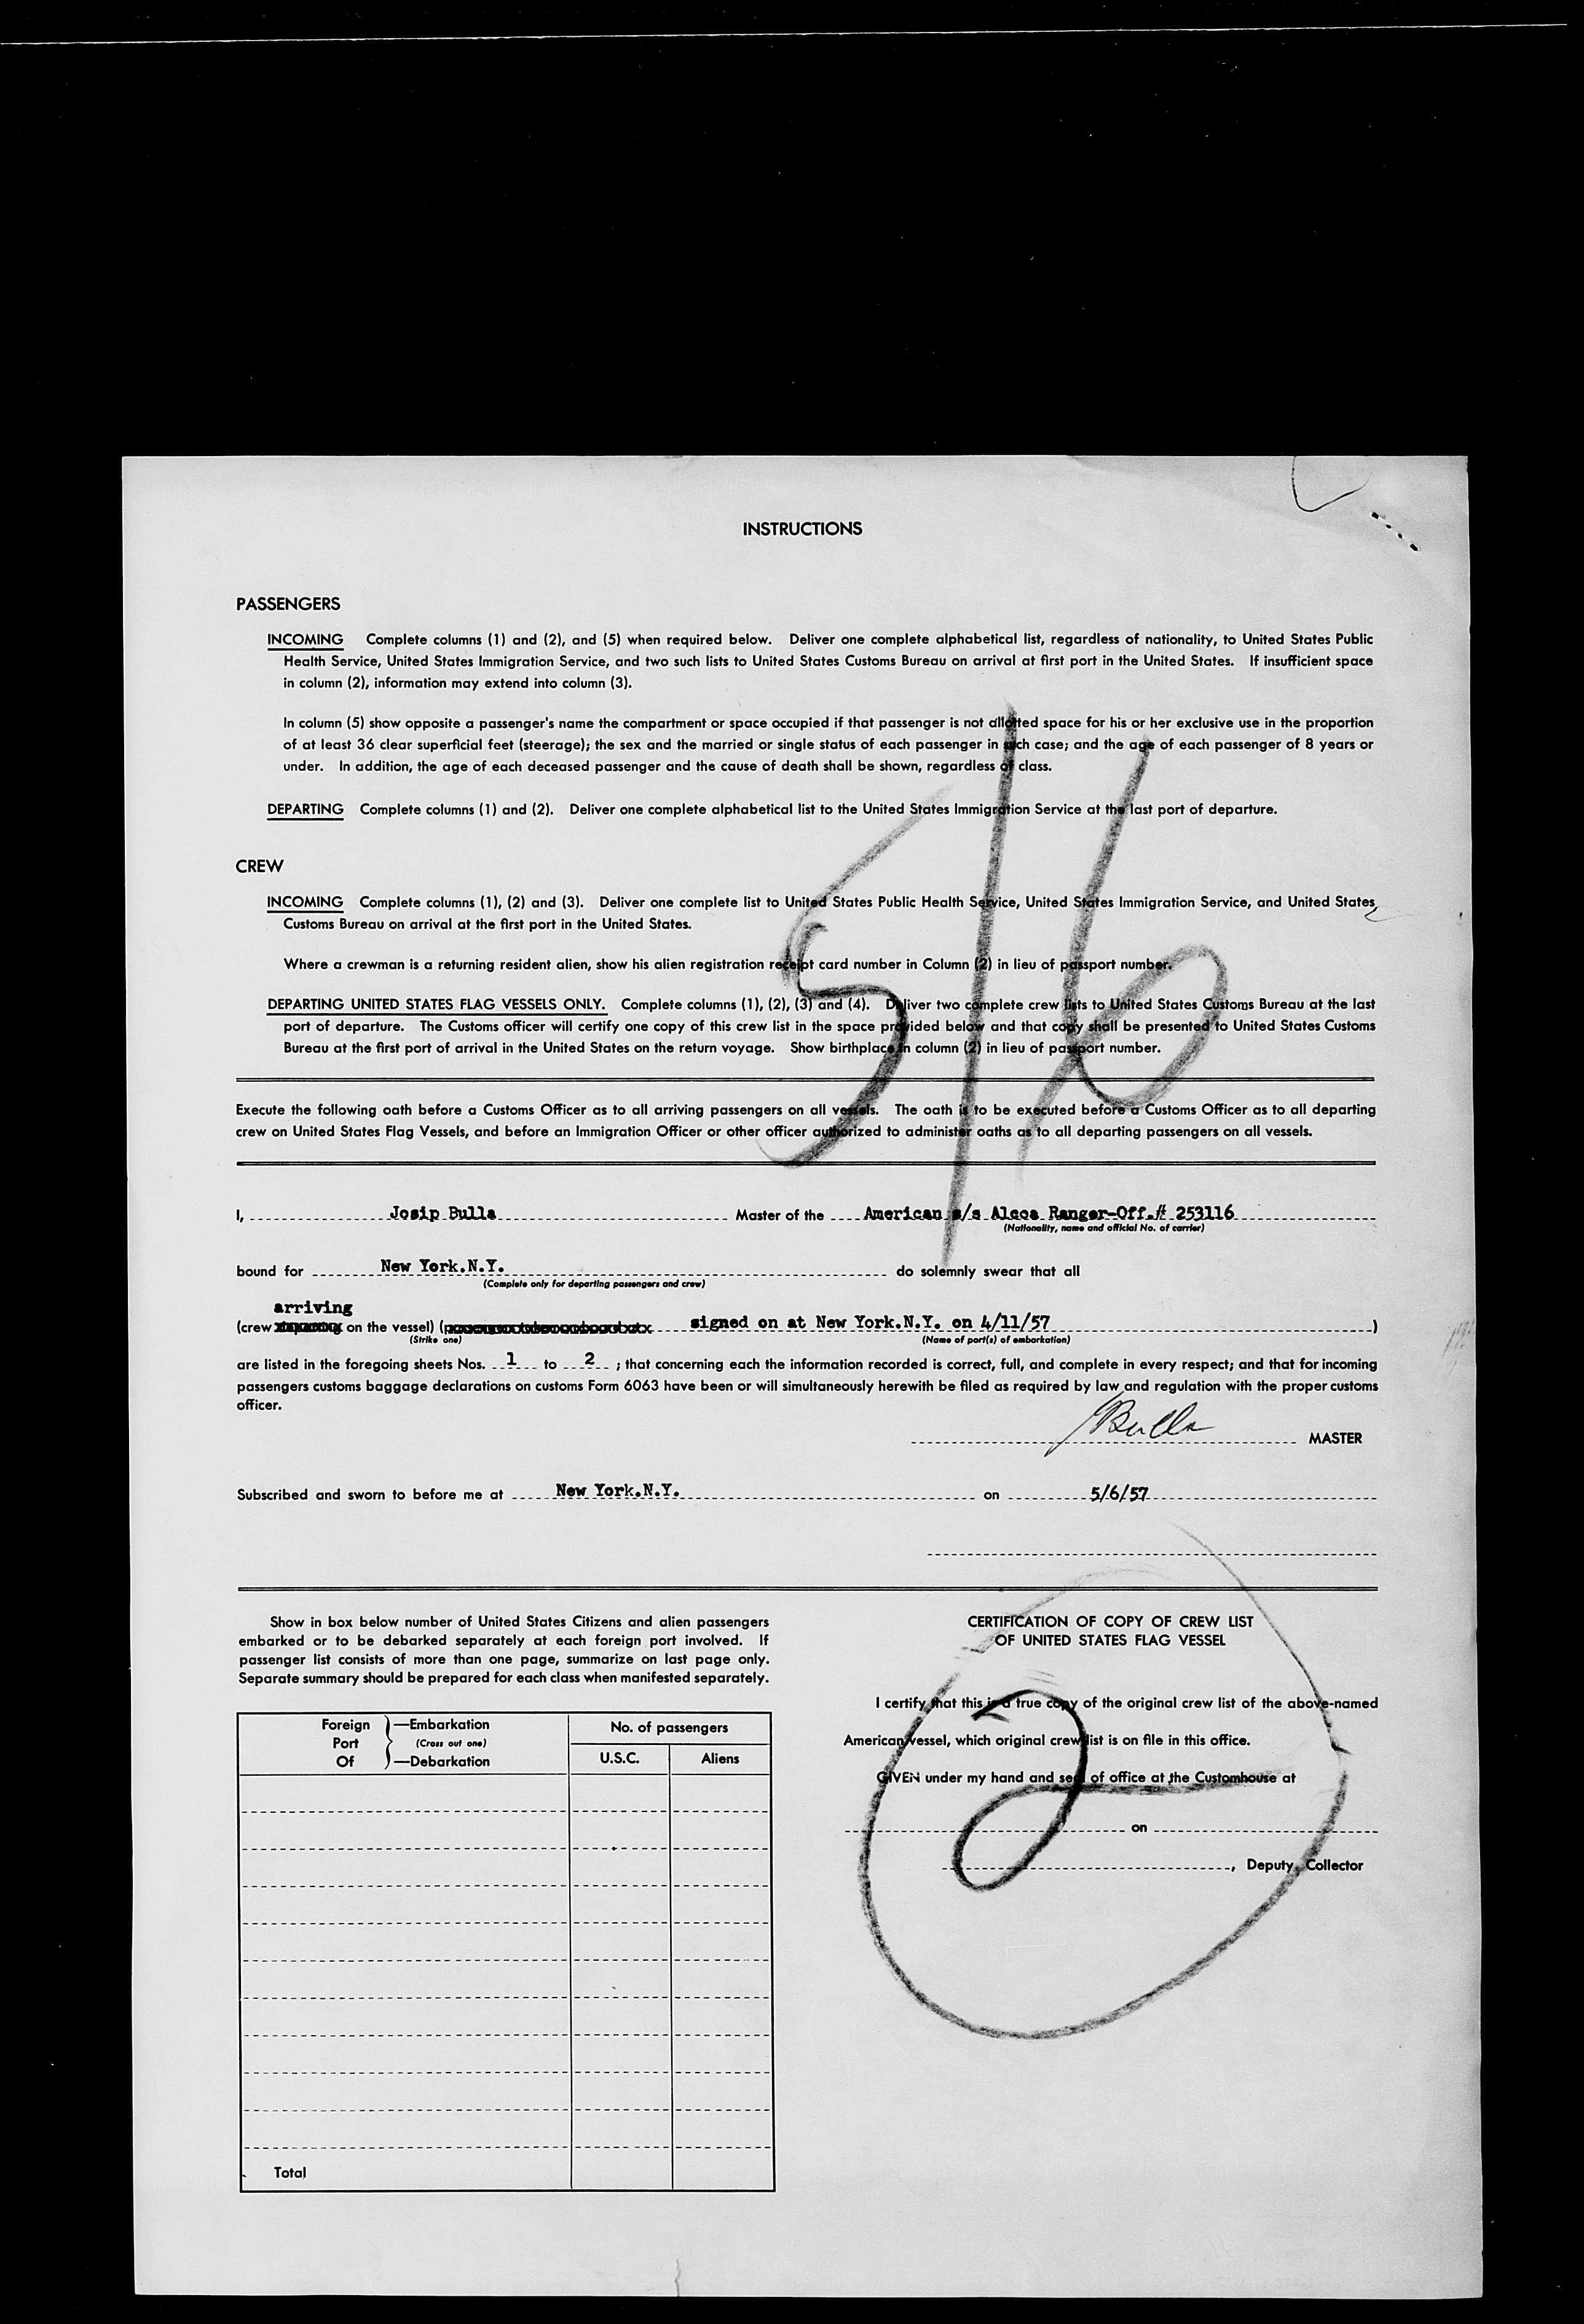 INSTRUCTIONS
PASSENGERS
INCOMING Complete columns (1) and (2), and (5) when required below. Deliver one complete alphabetical list, regardless of nationality, to United States Public
Health Service, United States Immigration Service, and two such lists to United States Customs Bureau on arrival at first port in the United States. If insufficient space
in column (2), information may extend into column (3).
In column (5) show opposite a passenger's name the compartment or space occupied if that passenger is not allotted space for his or her exclusive use in the proportion
of at least 36 clear superficial feet (steerage); the sex and the married or single status of each passenger in such case; and the age of each passenger of 8 years or
under. In addition, the age of each deceased passenger and the cause of death shall be shown, regardless of class.
DEPARTING Complete columns (1) and (2). Deliver one complete alphabetical list to the United States Immigration Service at the last port of departure.
CREW
INCOMING Complete columns (1), (2) and (3). Deliver one complete list to United States Public Health Service, United States Immigration Service, and United States
Customs Bureau on arrival at the first port in the United States.
Where a crewman is a returning resident alien, show his alien registration receipt card number in Column (2) in lieu of passport number.
DEPARTING UNITED STATES FLAG VESSELS ONLY. Complete columns (1), (2), (3) and (4). Deliver two complete crew lists to United States Customs Bureau at the last
port of departure. The Customs officer will certify one copy of this crew list in the space provided below and that copy shall be presented to United States Customs
Bureau at the first port of arrival in the United States on the return voyage. Show birthplace in column (2) in lieu of passport number.
5/6
Execute the following oath before a Customs Officer as to all arriving passengers on all vessels. The oath is to be executed before a Customs Officer as to all departing
crew on United States Flag Vessels, and before an Immigration Officer or other officer authorized to administer oaths as to all departing passengers on all vessels.
I, Josip Bulla Master of the American s/s Alcoa Ranger-Off.# 253116
(Nationality, name and official No. of carrier)
bound for New York.N.Y. do solemnly swear that all
(Complete only for departing passengers and crew)
arriving
(crew on the vessel) ( signed on at New York.N.Y. on 4/11/57 )
(Strike one) (Name of port(s) of embarkation)
are listed in the foregoing sheets Nos. 1 to 2 ; that concerning each the information recorded is correct, full, and complete in every respect; and that for incoming
passengers customs baggage declarations on customs Form 6063 have been or will simultaneously herewith be filed as required by law and regulation with the proper customs
officer.
Bulla MASTER
Subscribed and sworn to before me at New York.N.Y. on 5/6/57
Show in box below number of United States Citizens and alien passengers
embarked or to be debarked separately at each foreign port involved. If
passenger list consists of more than one page, summarize on last page only.
Separate summary should be prepared for each class when manifested separately.
Foreign Port Of —Embarkation (Cross out one) —Debarkation
No. of passengers
U.S.C. Aliens
Total
CERTIFICATION OF COPY OF CREW LIST
OF UNITED STATES FLAG VESSEL
I certify that this is a true copy of the original crew list of the above-named
American vessel, which original crew list is on file in this office.
GIVEN under my hand and seal of office at the Customhouse at
on
, Deputy Collector
2